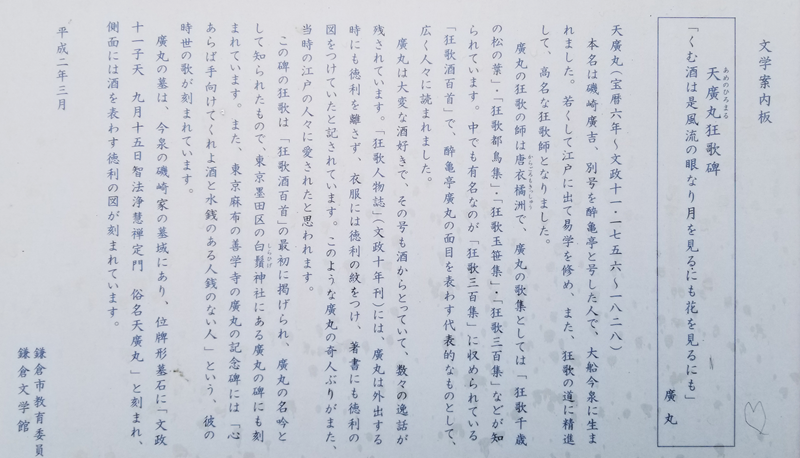 文学案内板
天廣丸狂歌碑
あめのひろまる
「くむ酒は是風流の眼なり月を見るにも花を見るにも」
廣丸
天廣丸(宝暦六年〜文政十一・一七五六〜一八二八)
本名は磯崎廣吉、別号を酔亀亭と号した人で、大船今泉に生ま
れました。若くして江戸に出て易学を修め、また、狂歌の道に精進
して、高名な狂歌師となりました。
廣丸の狂歌の師は唐衣橘洲で、廣丸の歌集としては「狂歌千歳
からごろもきっしゅう
の松の葉」・「狂歌都鳥集」・「狂歌玉笹集」・「狂歌三百集」などが知
られています。中でも有名なのが「狂歌三百集」に収められている
「狂歌酒百首」で、酔亀亭廣丸の面目を表わす代表的なものとして、
広く人々に読まれました。
廣丸は大変な酒好きで、その号も酒からとっていて、数々の逸話が
残されています。「狂歌人物誌」(文政十年刊)には、廣丸は外出する
時にも徳利を離さず、衣服には徳利の紋をつけ、著書にも徳利の
図をつけていたと記されています。このような廣丸の奇人ぶりがまた、
当時の江戸の人々に愛されたと思われます。
この碑の狂歌は「狂歌酒百首」の最初に掲げられ、廣丸の名吟と
して知られたもので、東京墨田区の白鬚神社にある廣丸の碑にも刻
しらひげ
まれています。また、東京麻布の善学寺の廣丸の記念碑には「心
あらば手向けてくれよ酒と水銭のある人銭のない人」という、彼の
時世の歌が刻まれています。
廣丸の墓は、今泉の磯崎家の墓域にあり、位牌形墓石に「文政
十一子天 九月十五日智法浄慧禅定門 俗名天廣丸」と刻まれ、
側面には酒を表わす徳利の図が刻まれています。
平成二年三月
鎌倉市教育委員
鎌倉文学館